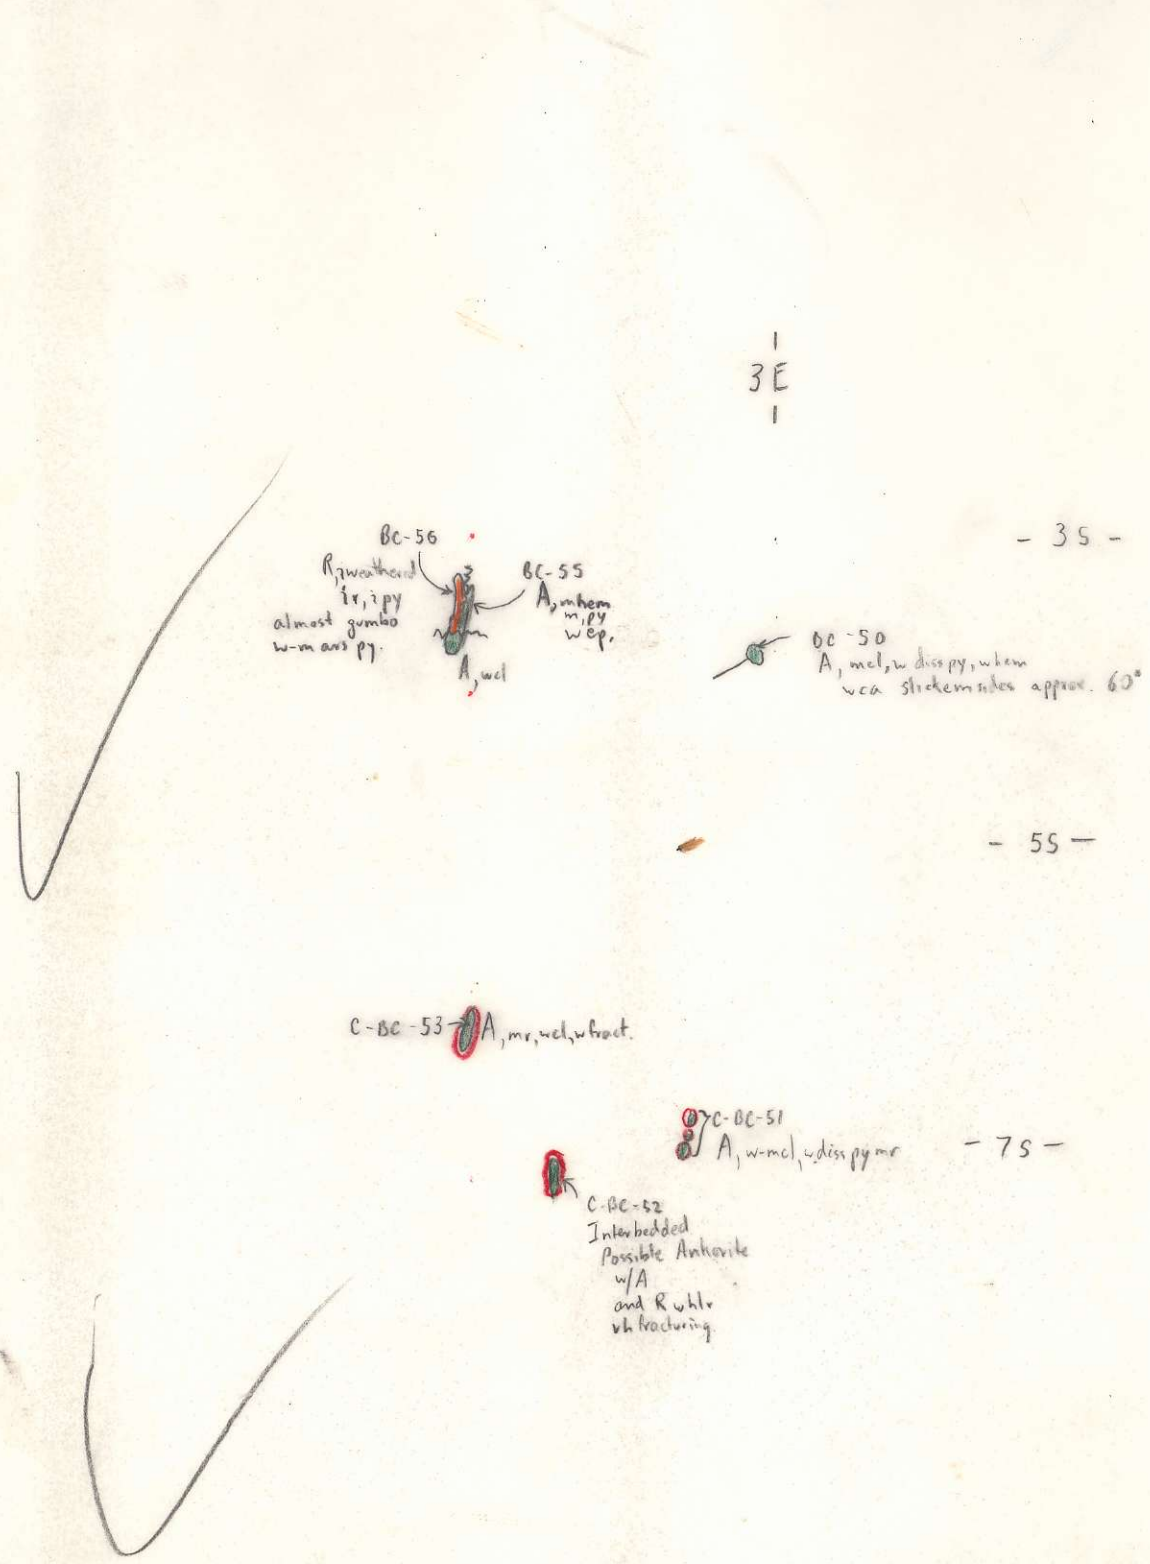 3E
- 3S -
BC-56
R, weathered
ir, ipy
almost gumbo
w-m ars py.
BC-55
A, mhem
m, py
wep.
A, wcl
BC-50
A, mcl, w diss py, whem
wca slickensides approx. 60°
- 5S -
C-BC-53
A, mr, wcl, w fract.
C-BC-51
A, w-mcl, w diss py mr
- 7S -
C-BC-52
Interbedded
Possible Ankerite
w/A
and R whlr
vh fracturing.